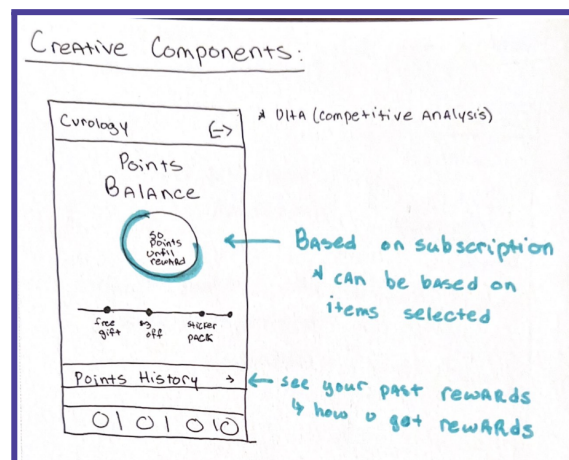 Creative Components:
Curology
* Ulta (competitive Analysis)
Points
Balance
50
points
until
reward
Based on subscription
* can be based on
items selected
free
gift
$3
off
sticker
pack
Points History →
see your past rewards
↳ how u got rewards